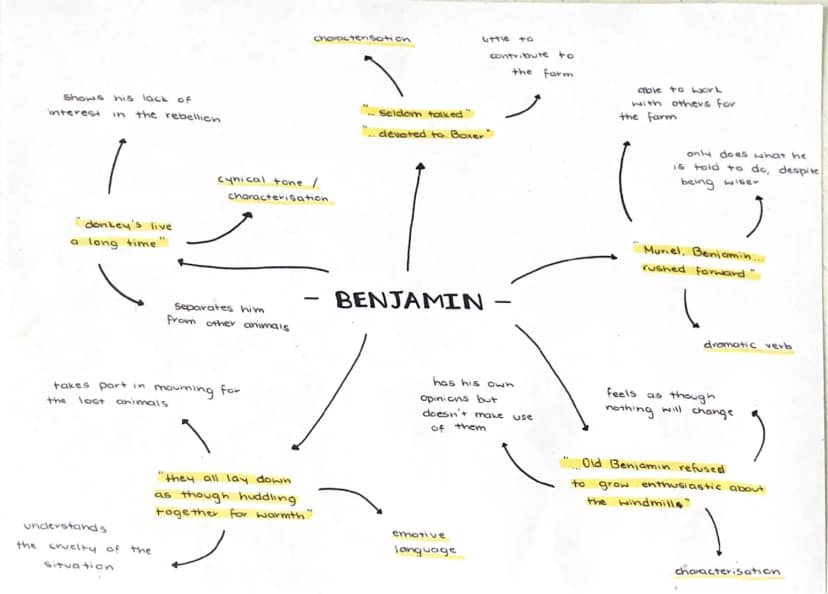 characterisation
little to
contribute to
the farm
"... seldom talked"
"... devoted to Boxer"
shows his lack of
interest in the rebellion
cynical tone /
characterisation
"donkey's live
a long time"
separates him
from other animals
able to work
with others for
the farm
only does what he
is told to do, despite
being wiser
"Muriel, Benjamin...
rushed forward"
dramatic verb
- BENJAMIN -
takes part in mourning for
the lost animals
"they all lay down
as though huddling
together for warmth"
understands
the cruelty of the
situation
emotive
language
has his own
opinions but
doesn't make use
of them
feels as though
nothing will change
"...Old Benjamin refused
to grow enthusiastic about
the windmills"
characterisation